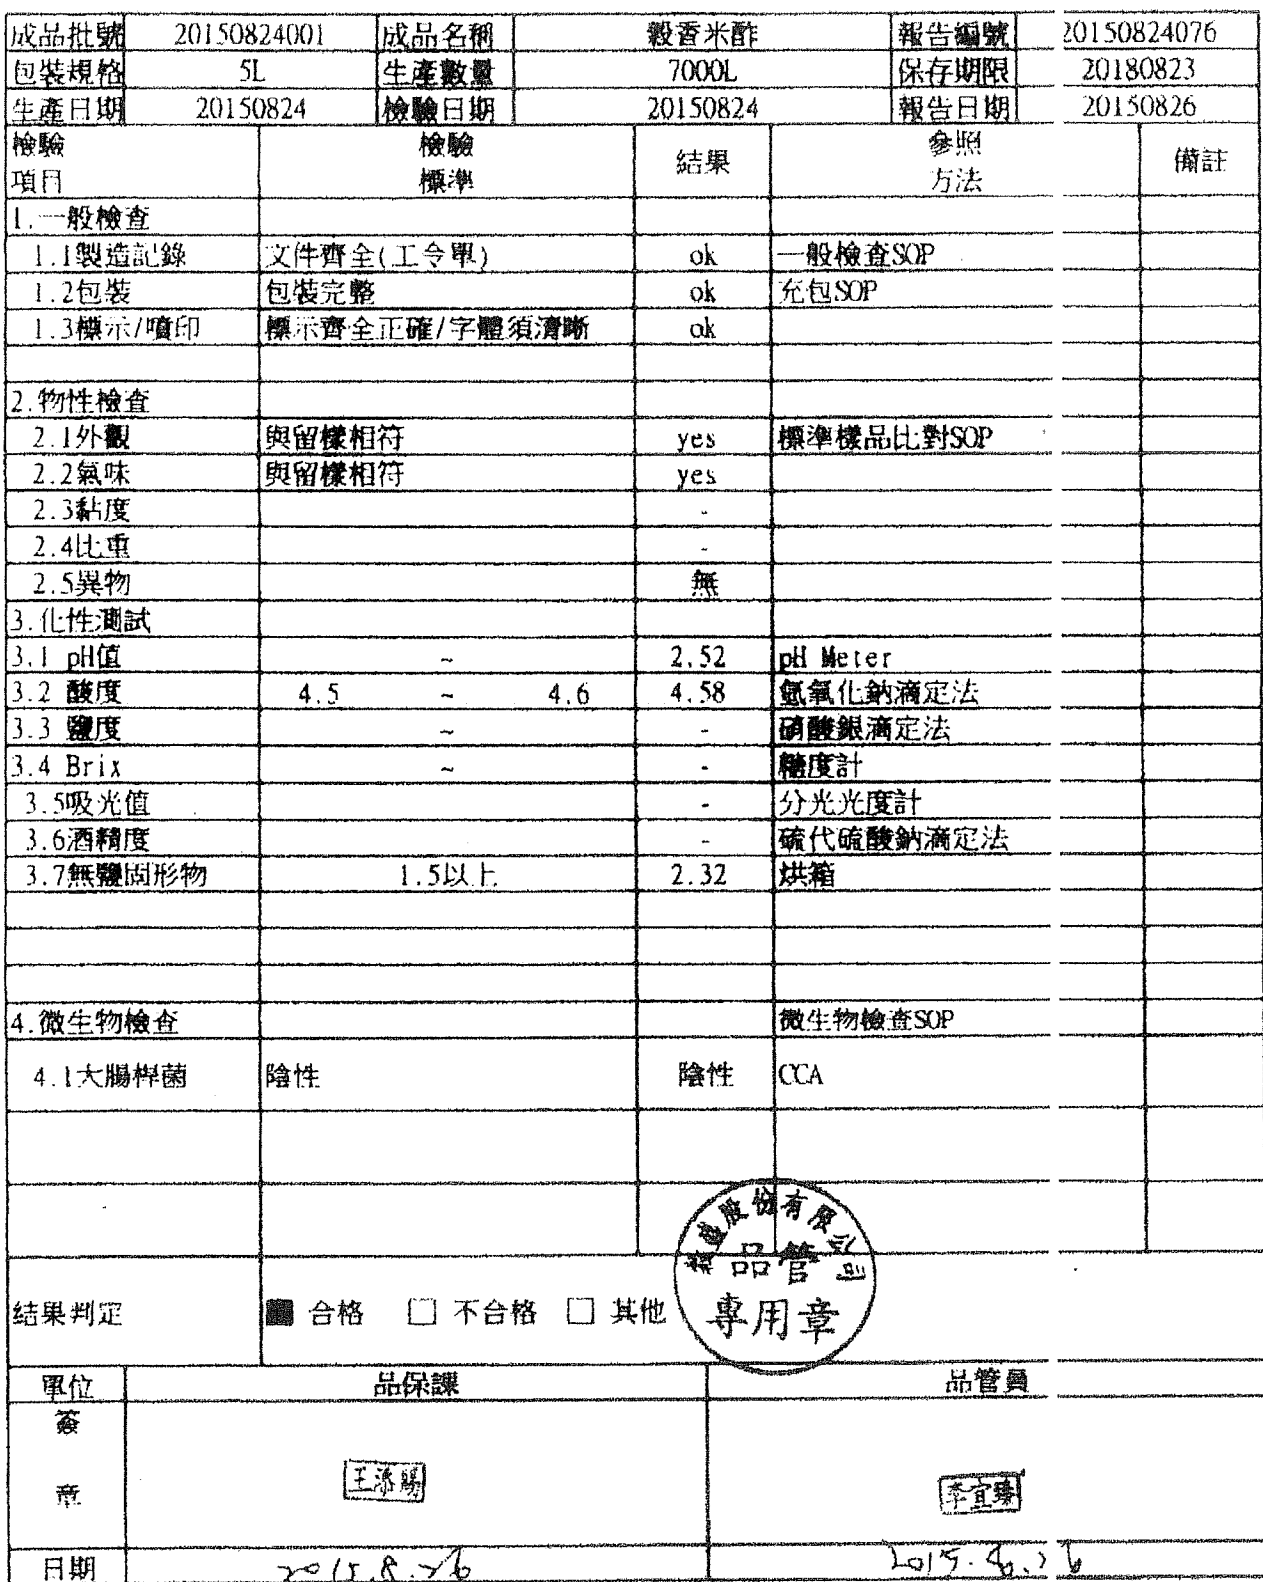 成品批號 20150824001 成品名稱 穀香米酢 報告編號 20150824076
包裝規格 5L 生產數量 7000L 保存期限 20180823
生產日期 20150824 檢驗日期 20150824 報告日期 20150826
檢驗 檢驗 結果 參照 備註
項目 標準 方法
1.一般檢查
1.1製造記錄 文件齊全(工令單) ok 一般檢查SOP
1.2包裝 包裝完整 ok 充包SOP
1.3標示/噴印 標示齊全正確/字體須清晰 ok
2.物性檢查
2.1外觀 與留樣相符 yes 標準樣品比對SOP
2.2氣味 與留樣相符 yes
2.3黏度 -
2.4比重 -
2.5異物 無
3.化性測試
3.1 pH值 ~ 2.52 pH Meter
3.2 酸度 4.5 ~ 4.6 4.58 氫氧化鈉滴定法
3.3 鹽度 ~ - 硝酸銀滴定法
3.4 Brix ~ - 糖度計
3.5吸光值 - 分光光度計
3.6酒精度 - 硫代硫酸鈉滴定法
3.7無鹽固形物 1.5以上 2.32 烘箱
4.微生物檢查 微生物檢查SOP
4.1大腸桿菌 陰性 陰性 CCA
股份有限公司
品管
專用章
结果判定 ■ 合格 □ 不合格 □ 其他
單位 品保課 品管員
簽
章 王添賜 李宜臻
日期 2015.8.26 2015.8.26